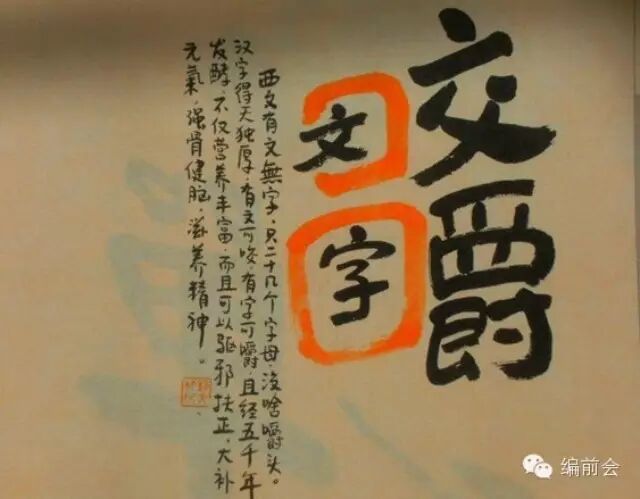 交爵
文字
西文有文無字,只二十几个字母,没啥嚼头。
汉字得天独厚,有文可咬,有字可嚼,且经五千年
发酵,不仅营养丰富,而且可以驱邪扶正,大补
元氣,强骨健脑,滋养精神。
编前会